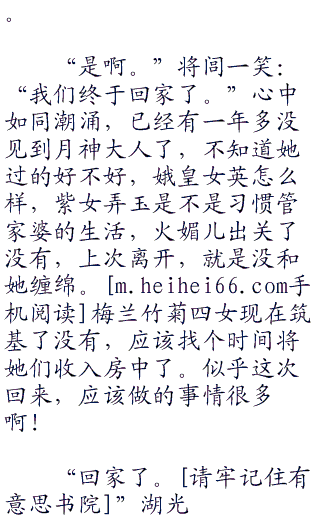 。
“是啊。”将闾一笑：
“我们终于回家了。”心中
如同潮涌，已经有一年多没
见到月神大人了，不知道她
过的好不好，娥皇女英怎么
样，紫女弄玉是不是习惯管
家婆的生活，火媚儿出关了
没有，上次离开，就是没和
她缠绵。[m.heihei66.com手
机阅读]梅兰竹菊四女现在筑
基了没有，应该找个时间将
她们收入房中了。似乎这次
回来，应该做的事情很多
啊！
“回家了。[请牢记住有
意思书院]”湖光